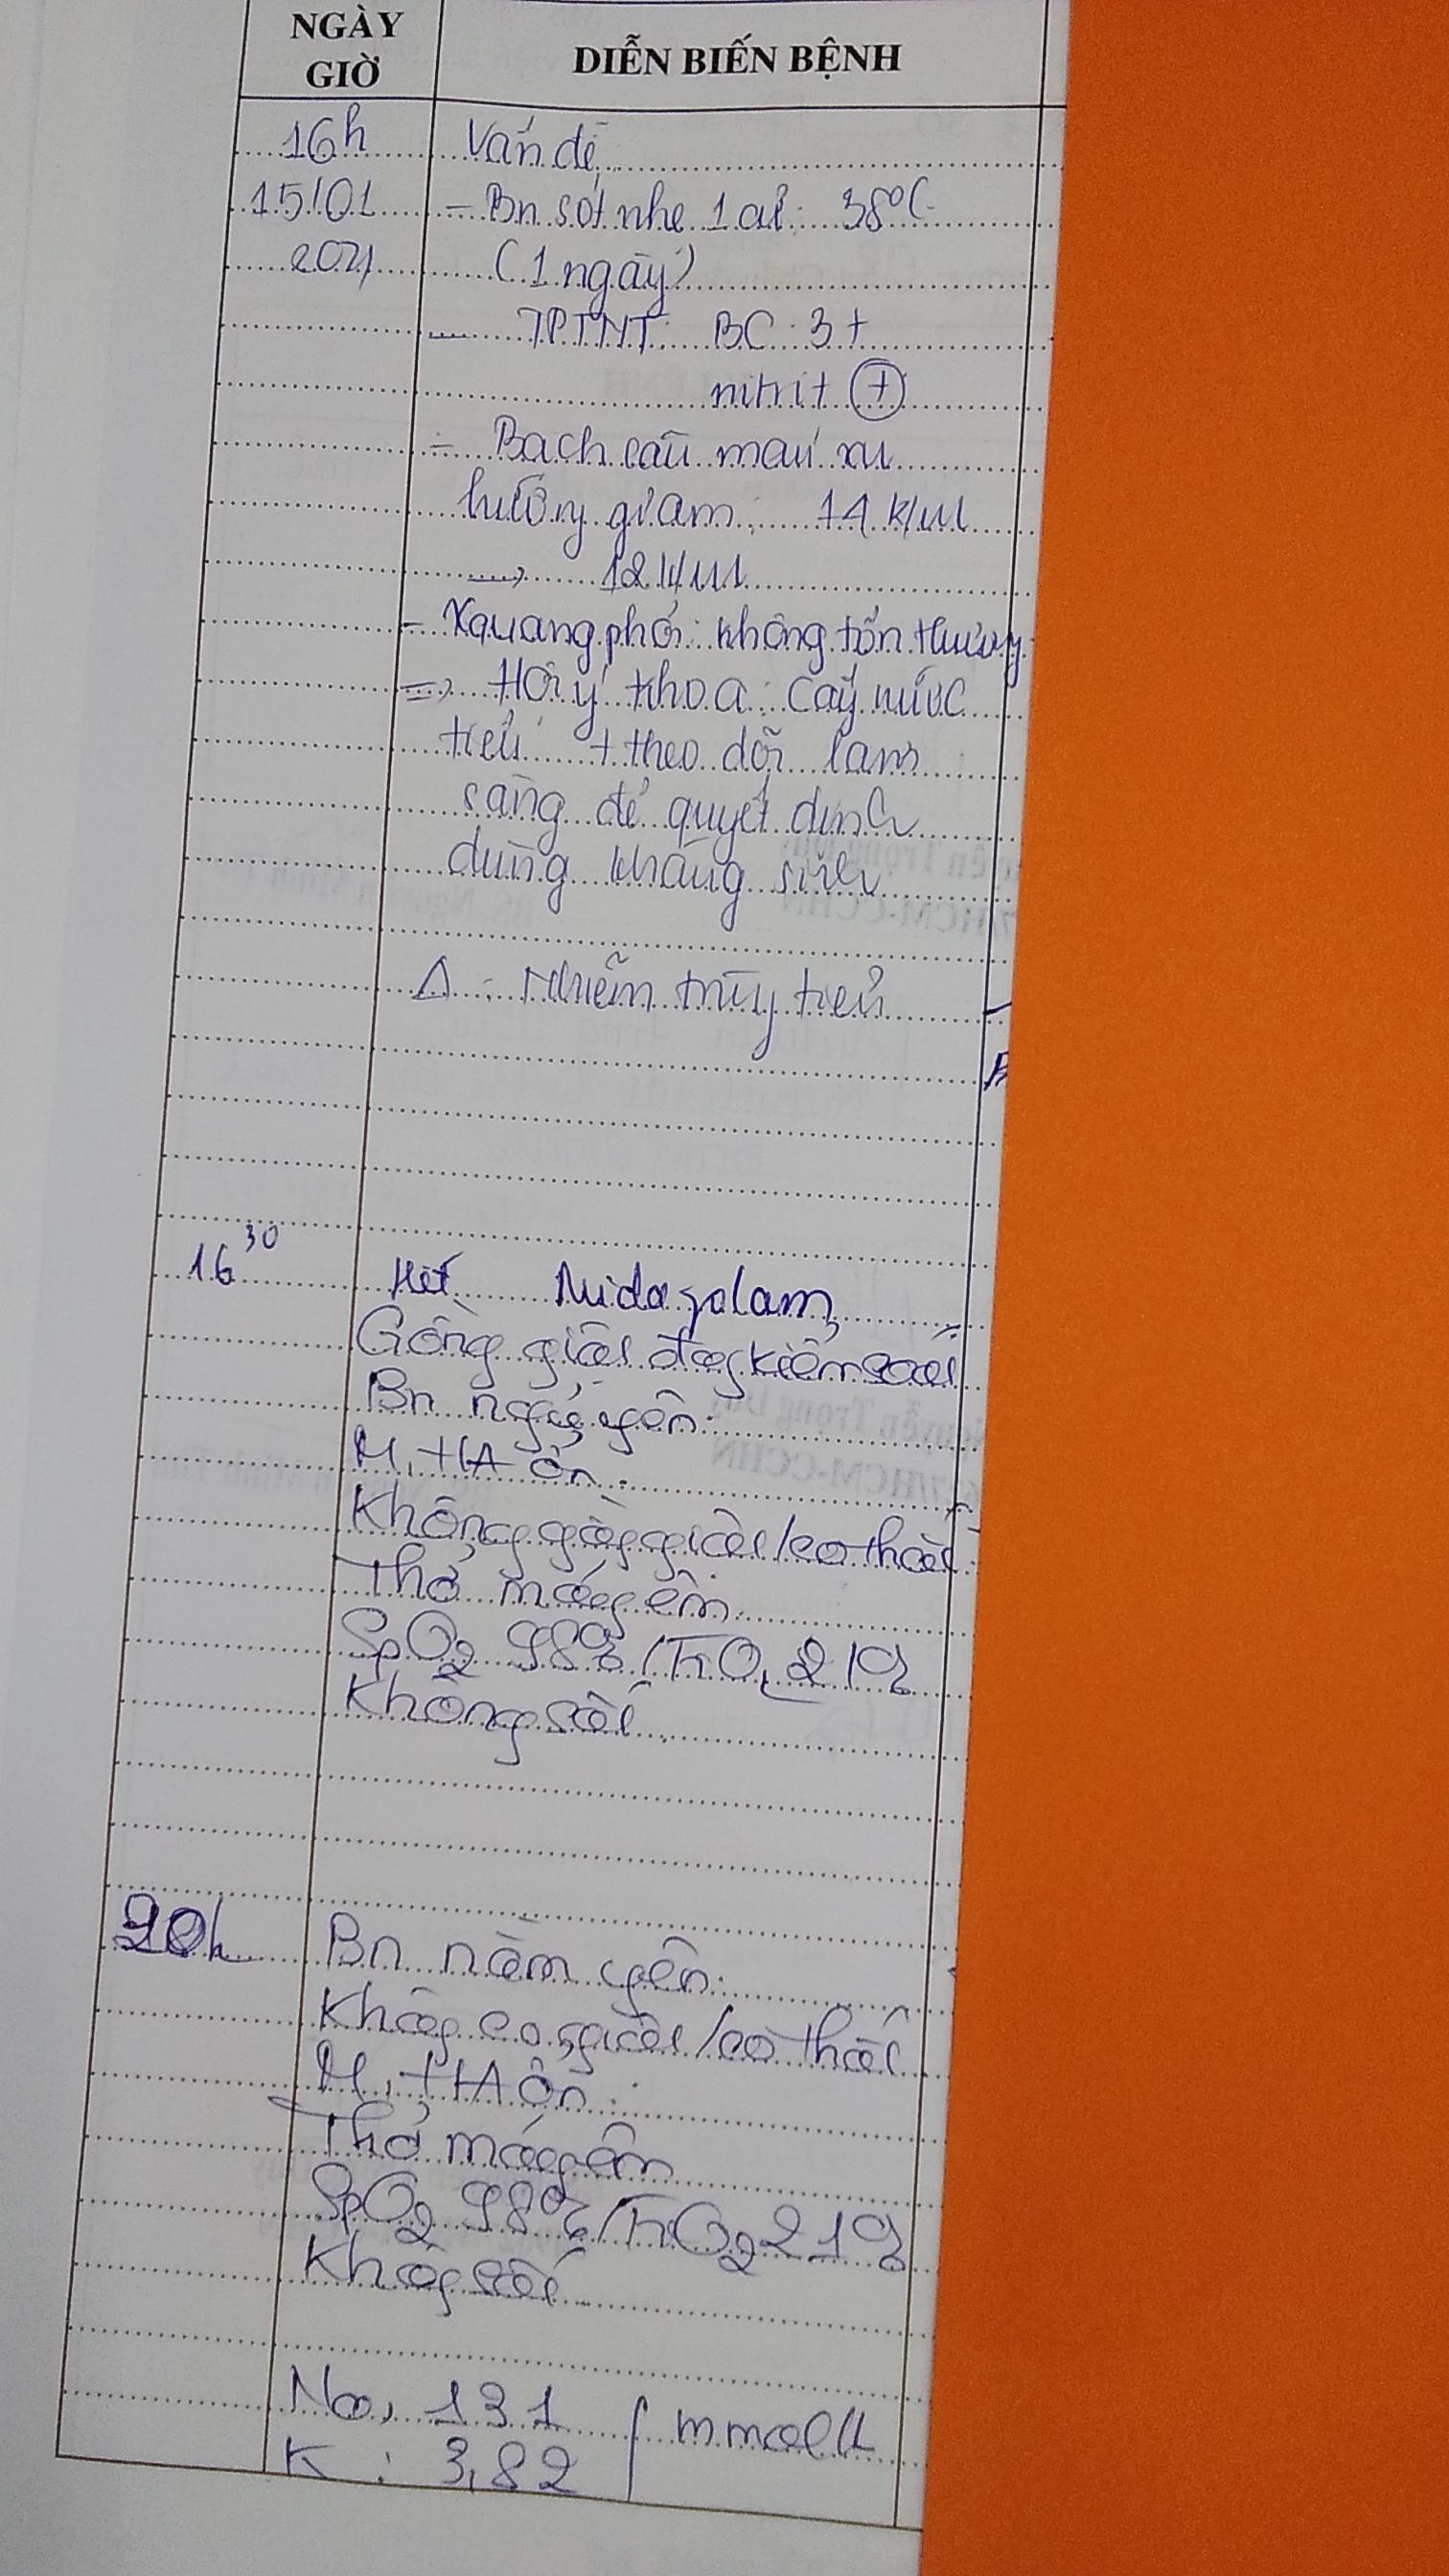 NGÀY
GIỜ
DIỄN BIẾN BỆNH
16h Vấn đề
15/01 - Bn sốt nhẹ 1 ∂: 38°C
2021 (1 ngày)
- TPTNT: BC: 3+
nitrit (+)
- Bạch cầu máu xu
hướng giảm: 14 k/ul
→ 12 k/ul
- Xquang phổi: không tổn thương
=> Hội ý khoa: Cấy nước
tiểu + theo dõi lâm
sàng để quyết định
dùng kháng sinh
Δ: Nhiễm trùng tiểu
16 30 Hết Midazolam
Gồng giật đang kiểm soát
Bn ngủ yên.
M, HA ổn.
Không gồng giật/co thắt
Thở máy êm.
SpO2 98%/FiO2 21%
Không sốt
20h Bn nằm yên.
Không co giật/co thắt
M, HA ổn.
Thở máy êm
SpO2 98%/FiO2 21%
Không sốt
Na, 131 / mmol/L
K : 3,82